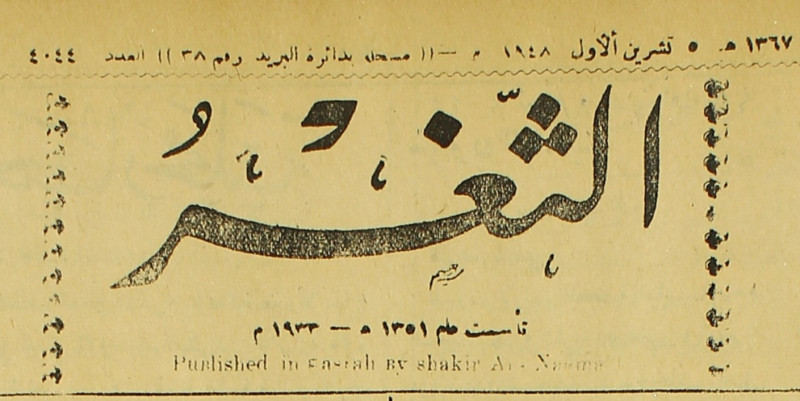 ١٣٦٧ هـ ٥ تشرين الأول ١٩٤٨ م —(( مسجلة بدائرة البريد رقم ٣٨ )) العدد ٤٠٤٤
الثَّغْرُ
تأسست عام ١٣٥١ ه — ١٩٣٣ م
Published in Basrah By shakir